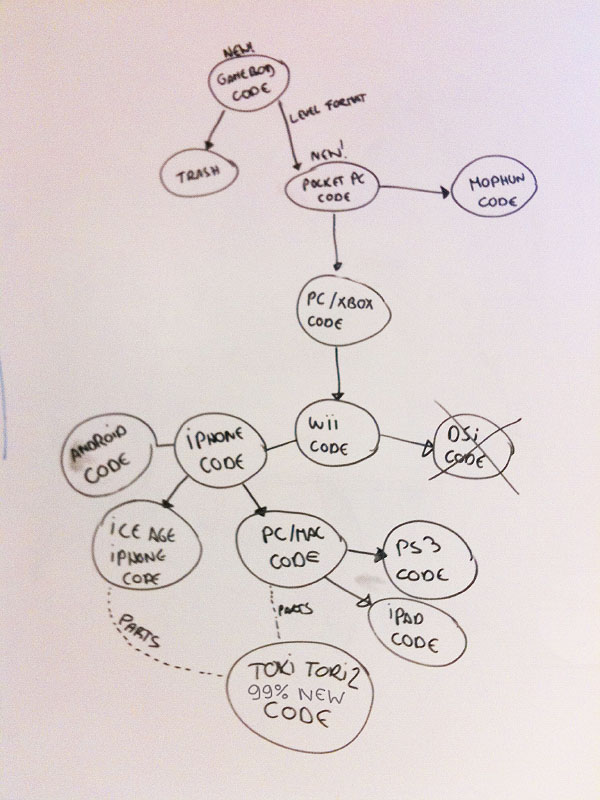 NEW!
GAMEBOY
CODE
LEVEL FORMAT
TRASH
NEW!
POCKET PC
CODE
MOPHUN
CODE
PC/XBOX
CODE
ANDROID
CODE
iPHONE
CODE
Wii
CODE
DSi
CODE
iCE AGE
iPHONE
CODE
PC/MAC
CODE
PS3
CODE
iPAD
CODE
PARTS
PARTS
TOKi TORi 2
99% NEW
CODE